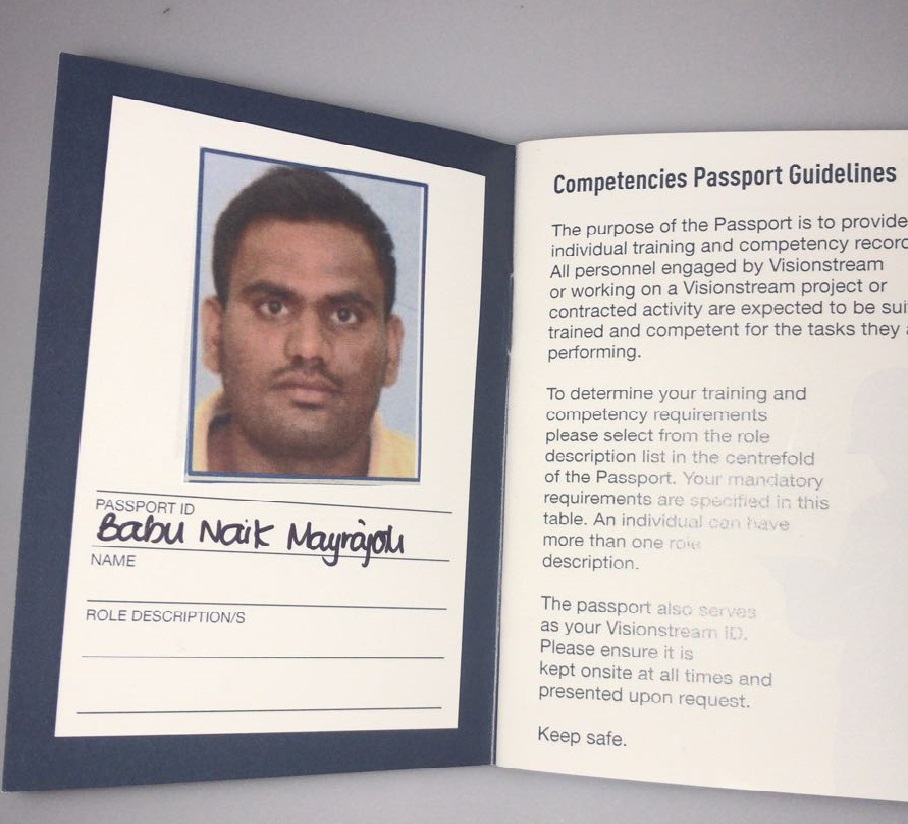 PASSPORT ID
Babu Naik Mayrajolu
NAME
ROLE DESCRIPTION/S
Competencies Passport Guidelines
The purpose of the Passport is to provide
individual training and competency
All personnel engaged by Visionstream
or working on a Visionstream project or
contracted activity are expected to be
trained and competent for the tasks they
performing.
To determine your training and
competency requirements
please select from the role
description list in the centrefold
of the Passport. Your mandatory
requirements are specified in this
table. An individual can have
more than one role
description.
The passport also serves
as your Visionstream ID.
Please ensure it is
kept onsite at all times and
presented upon request.
Keep safe.